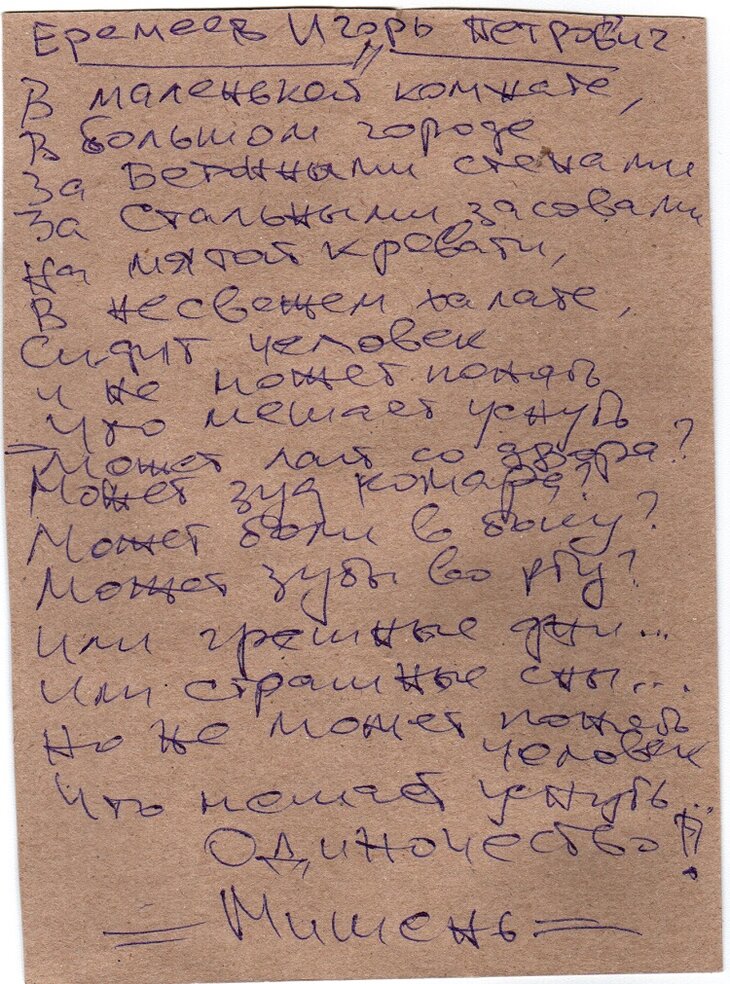 Еремеев Игорь Петрович
В маленькой комнате,
В большом городе
За Бетонными стенами
За Стальными засовами
На мятой кровати,
В несвежем халате,
Сидит человек
И не может понять
Что мешает уснуть
Может лай со двора?
Может зуд комара?
Может боли в боку?
Может зубы во рту?
Или грешные дни...
Или страшные сны...
Но не может понять
человек
Что мешает уснуть...
Одиночество!!
= Мишень =